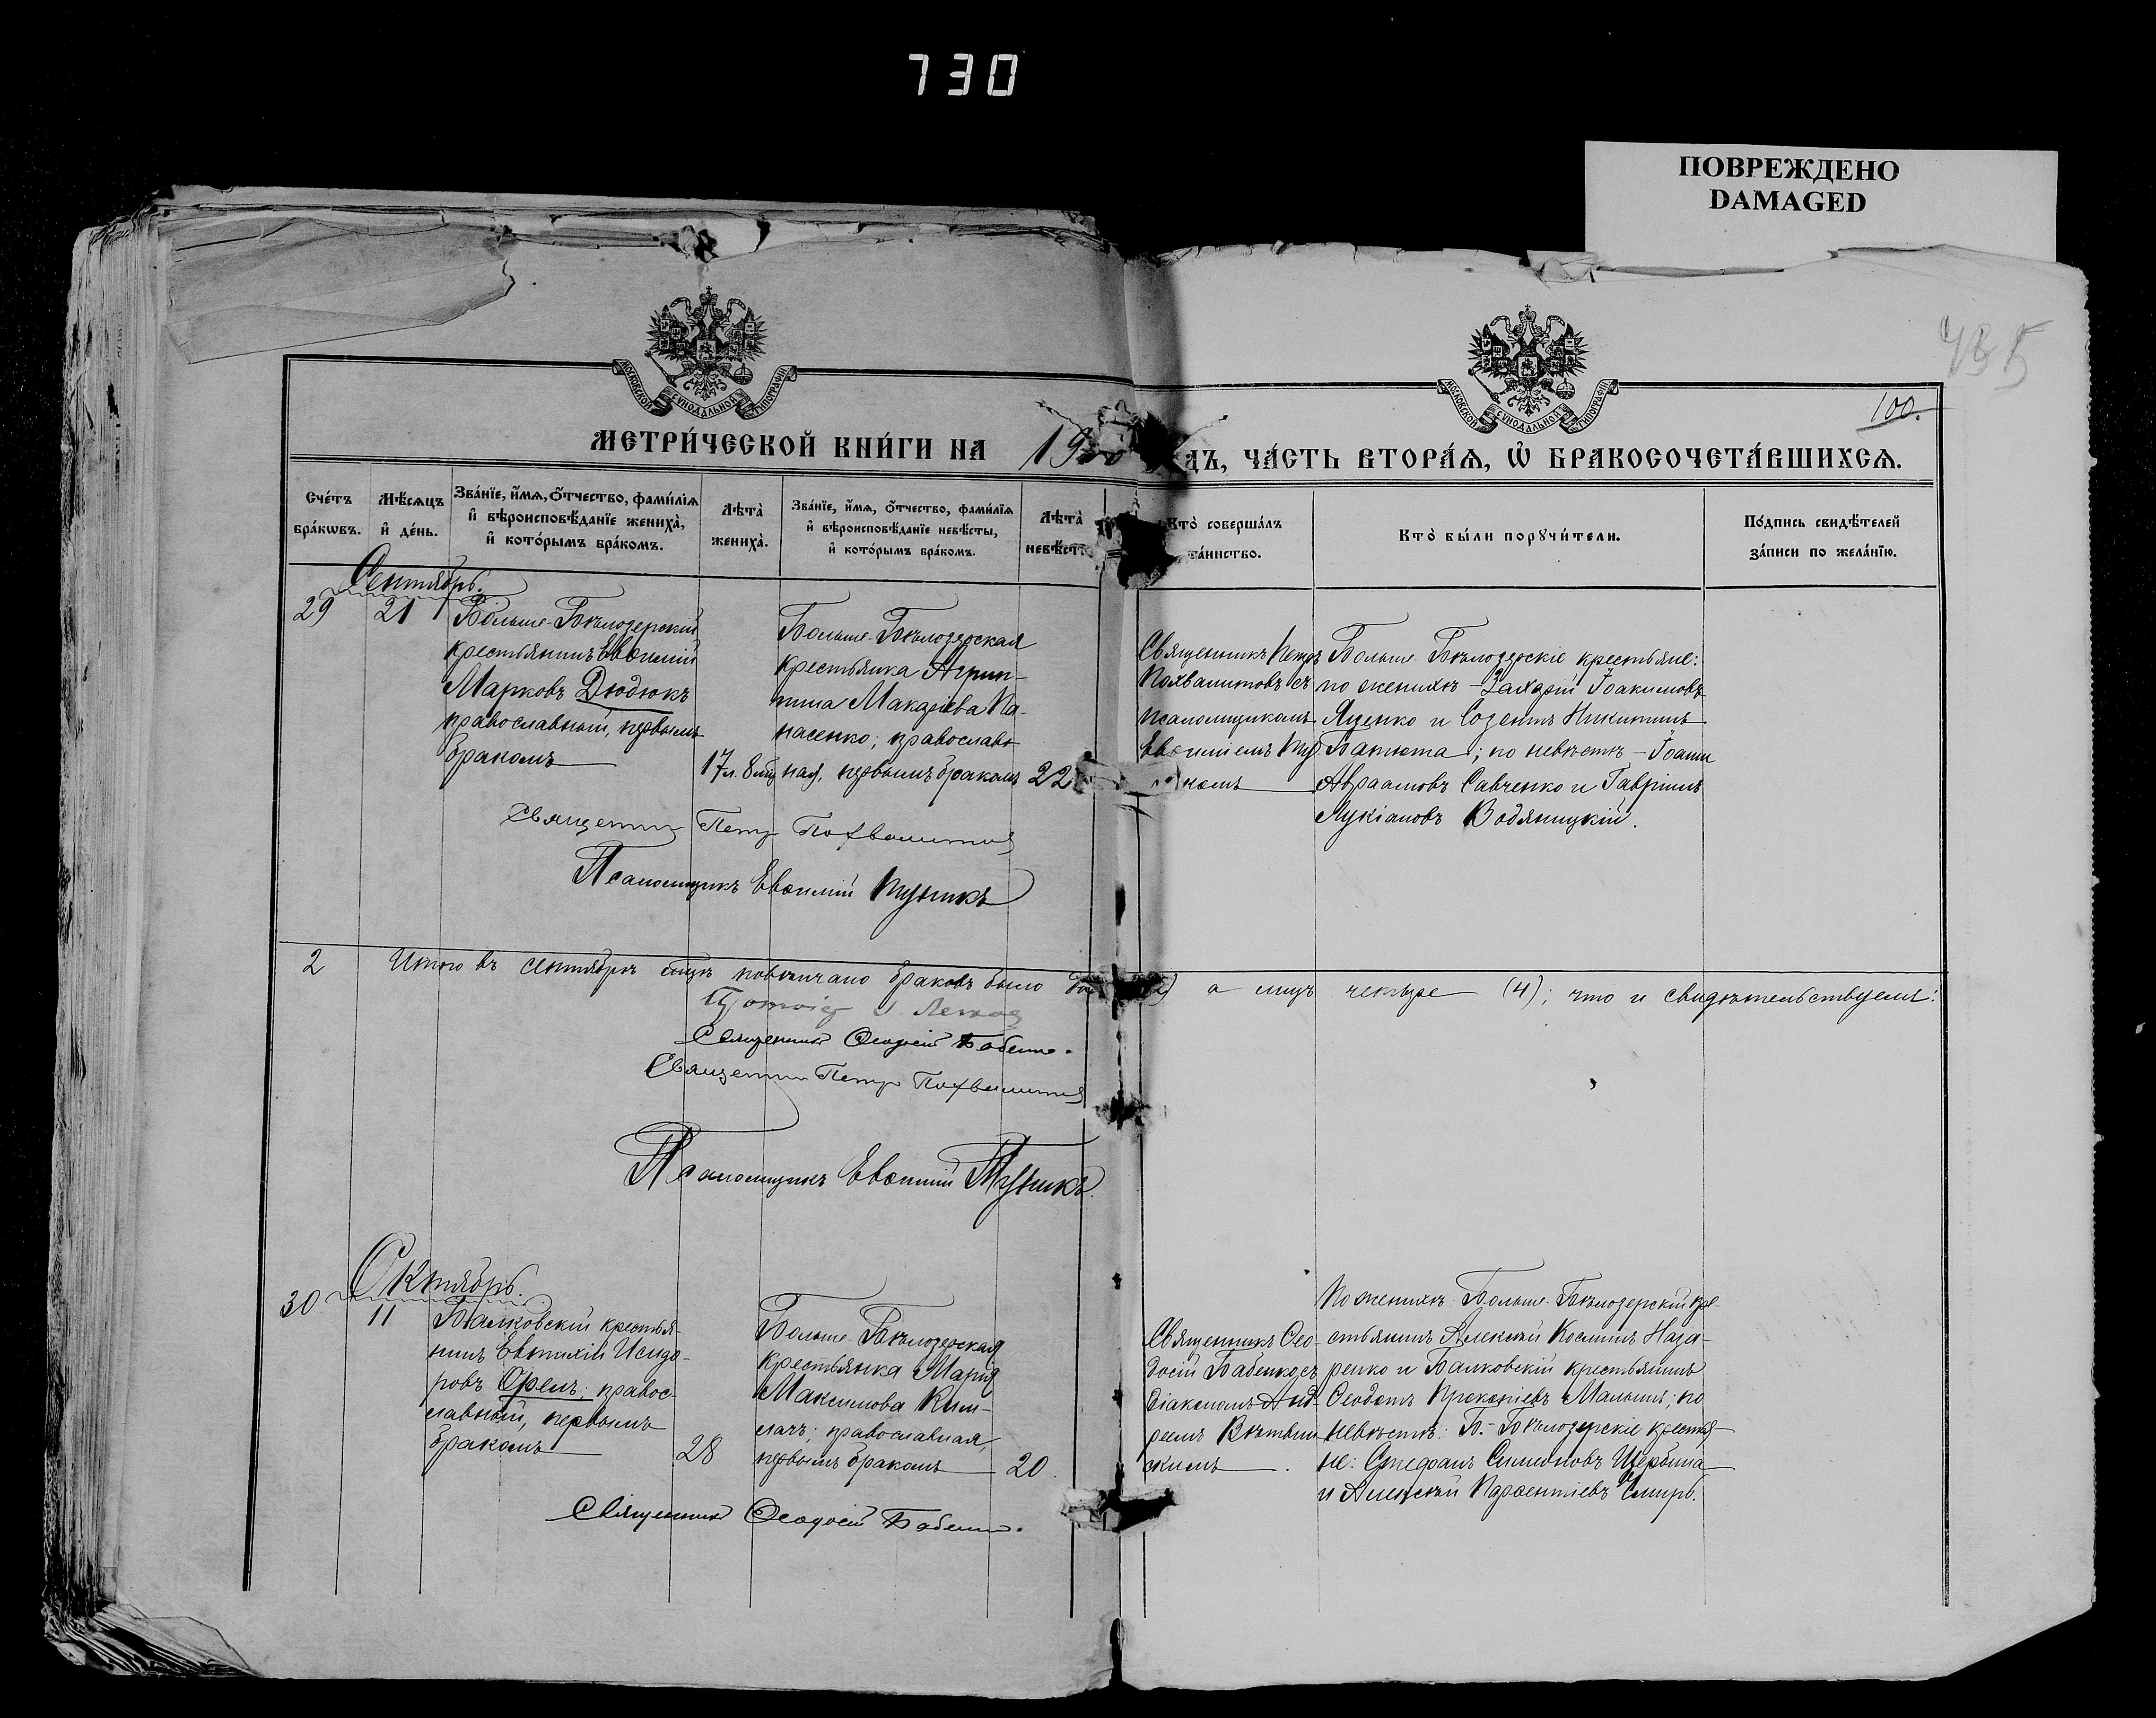 730
ПОВРЕЖДЕНО
DAMAGED
МОСКОВСКОЙ СУНОДАЛЬНОЙ ТИПОГРАФІИ
МОСКОВСКОЙ СУНОДАЛЬНОЙ ТИПОГРАФІИ
100.
МЕТРИ́ЧЕСКОЙ КНИ́ГИ НА 1900
ДЪ, ЧА́СТЬ ВТОРА́Ѧ, Ѽ БРАКОСОЧЕТА́ВШИХСѦ.
Сче́тъ бра́кѡвъ.
Мѣ́сѧцъ и҆ де́нь.
Зва́нїе, и҆́мѧ, ѻ҆́тчество, фами́лїѧ
и҆ вѣроисповѣ́данїе жениха̀,
и҆ кото́рымъ бра́комъ.
Лѣта̀ жениха̀.
Зва́нїе, и҆́мѧ, ѻ҆́тчество, фами́лїѧ
и҆ вѣроисповѣ́данїе невѣ́сты,
и҆ кото́рымъ бра́комъ.
Лѣта̀ невѣ́ст
Кто̀ соверша́лъ
та́инство.
Кто̀ бы́ли порꙋчи́тели.
По́дпись свидѣ́телей
за́писи по жела́нїю.
Сентябрь.
29 21
Больше-Бѣлозерскій
крестьянинъ Евѳимій
Марковъ Дюдюкъ
православный, первымъ
бракомъ
17 л. 8 мц
Больше-Бѣлозерская
крестьянка Агрип-
пина Макаріева Па-
насенко, православ-
ная, первымъ бракомъ 22
Священникъ Петръ
Похвалитовъ съ
псаломщикомъ
Евѳиміемъ Пу
комъ
Больше-Бѣлозерскіе крестьяне:
по женихѣ – Захарій Іоакимовъ
Яценко и Созонтъ Никитинъ
; по невѣстѣ – Іоаннъ
Авраамовъ Савченко и Гавріилъ
Лукіановъ Водяницкій.
Священник Петр Похвалитов
Псаломщикъ Евѳимій
2 Итого въ сентябрѣ мцѣ повѣнчано браковъ было
а лицъ четыре (4); что и свидѣтельствуемъ:
Священник Ѳеодосій Бабенко.
Священник Петр Похвалитов
Псаломщикъ Евѳимій
Октябрь.
30 11
Балковскій крестья-
нинъ Евтихій Исидо-
ровъ Орелъ, правос-
лавный, первымъ
бракомъ 28
Больше-Бѣлозерская
крестьянка Марія
Максимова Ким-
лачъ; православная,
первымъ бракомъ 20.
Священникъ Ѳео-
досій Бабенко съ
діакономъ Анд-
реемъ Вѣтвин-
скимъ.
По женихѣ: Больше-Бѣлозерскій кре-
стьянинъ Алексѣй Косминъ Наза-
ренко и Балковскій крестьянинъ
Ѳеодотъ Прокопіевъ Малышъ; по
невѣстѣ: Б.-Бѣлозерскіе крестья-
не: Стефанъ Симеоновъ Щербина
и Алексѣй Парѳентіевъ
Священник Ѳеодосій Бабенко.